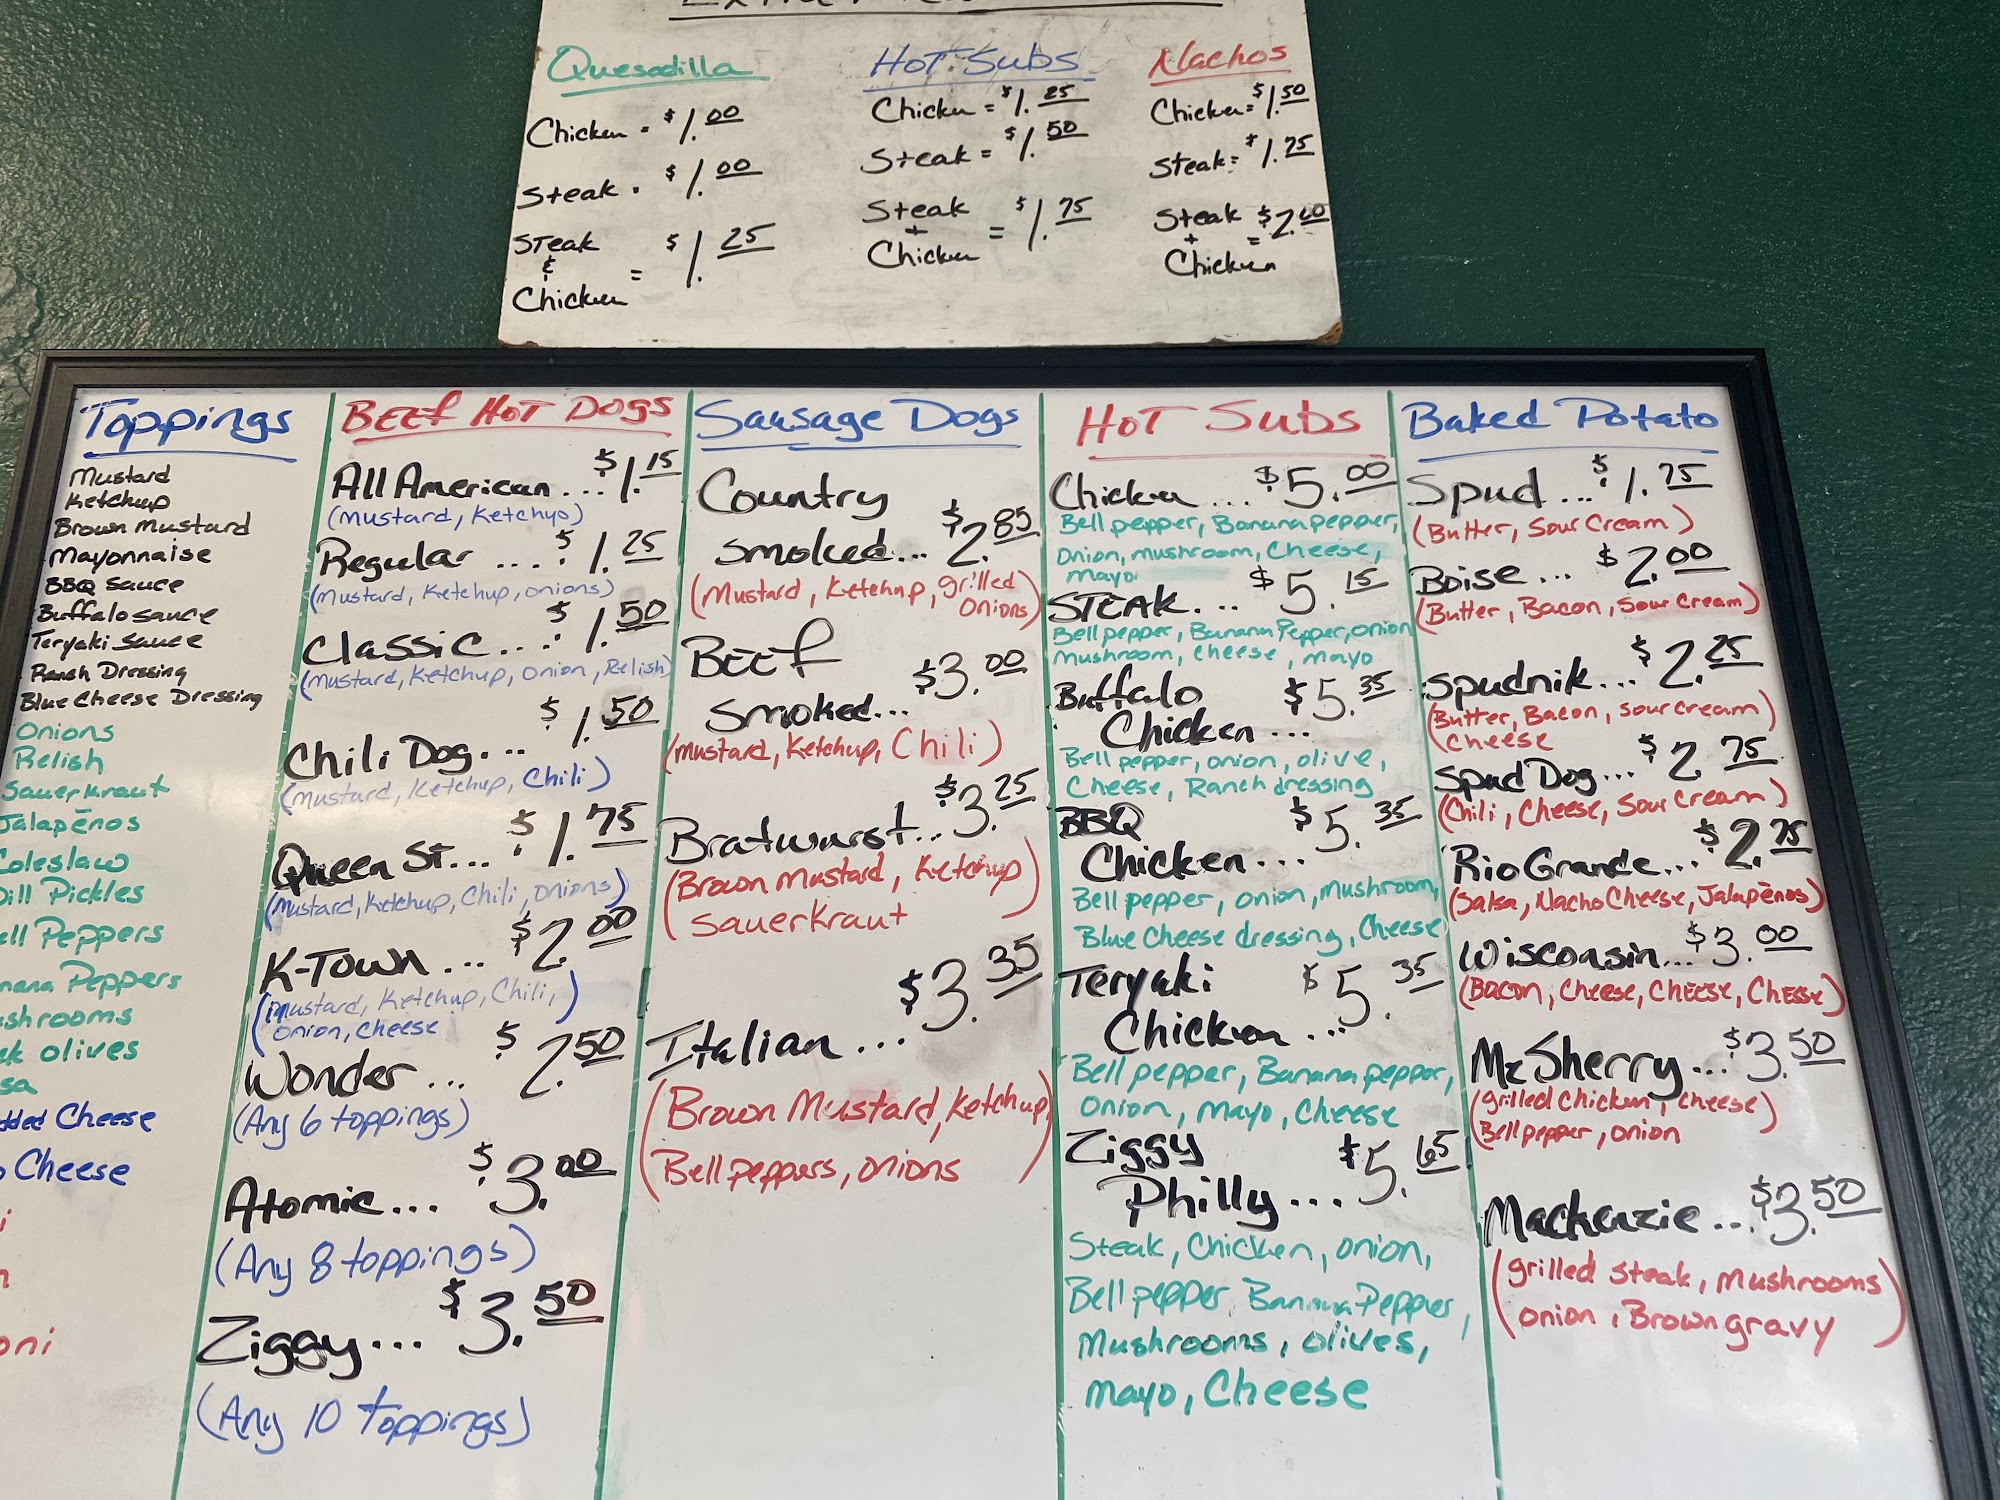 Quesadilla
Chicken = $1.00
Steak = $1.00
Steak
&
Chicken = $1.25
Hot Subs
Chicken = $1.25
Steak = $1.50
Steak
+
Chicken = $1.75
Nachos
Chicken = $1.50
Steak = $1.75
Steak
+
Chicken = $2.00
Toppings
Mustard
Ketchup
Brown Mustard
Mayonnaise
BBQ Sauce
Buffalo sauce
Teryaki Sauce
Ranch Dressing
Blue Cheese Dressing
Onions
Relish
Sauerkraut
Jalapēnos
Coleslaw
Dill Pickles
ell Peppers
nana Peppers
shrooms
ck olives
sa
dded Cheese
o Cheese
i
n
oni
BEEf HOT DOGS
All American... $1.15
(Mustard, Ketchup)
Regular .... $1.25
(Mustard, Ketchup, onions)
Classic... $1.50
(Mustard, Ketchup, Onion, Relish)
Chili Dog... $1.50
(Mustard, Ketchup, Chili)
Queen St... $1.75
(Mustard, Ketchup, Chili, onions)
K-Town ... $2.00
(Mustard, Ketchup, Chili,
onion, cheese)
Wonder ... $2.50
(Any 6 toppings)
Atomic... $3.00
(Any 8 toppings)
Ziggy... $3.50
(Any 10 toppings)
Sausage Dogs
Country
Smoked... $2.85
(Mustard, Ketchup, grilled
onions)
BEEf
Smoked... $3.00
(Mustard, Ketchup, Chili)
Bratwurst... $3.25
(Brown Mustard, Ketchup
Sauerkraut)
Italian ... $3.35
(Brown Mustard, Ketchup
Bell peppers, onions)
HOT Subs
Chicken ... $5.00
Bell pepper, Banana pepper,
onion, mushroom, Cheese,
mayo
STEAK... $5.15
Bell pepper, Banana Pepper, onion
Mushroom, cheese, mayo
Buffalo
Chicken ... $5.35
Bell pepper, onion, olive,
Cheese, Ranch dressing
BBQ
Chicken... $5.35
Bell pepper, onion, mushroom,
Blue Cheese dressing, Cheese
Teryaki
Chicken ... $5.35
Bell pepper, Banana pepper,
onion, mayo, cheese
Ziggy
Philly... $5.65
Steak, Chicken, onion,
Bell pepper, Banana Pepper,
Mushrooms, olives,
Mayo, Cheese
Baked Potato
Spud ... $1.75
(Butter, Sour Cream)
Boise ... $2.00
(Butter, Bacon, Sour Cream)
Spudnik... $2.25
(Butter, Bacon, Sour cream)
cheese
Spud Dog... $2.75
(Chili, Cheese, Sour Cream)
Rio Grande... $2.75
(Salsa, Nacho Cheese, Jalapēnos)
Wisconsin... $3.00
(Bacon, Cheese, CHEESE, CHEESE)
McSherry... $3.50
(grilled chicken, cheese)
Bell pepper, onion
Mackenzie... $3.50
(grilled steak, Mushrooms
onion, Brown gravy)